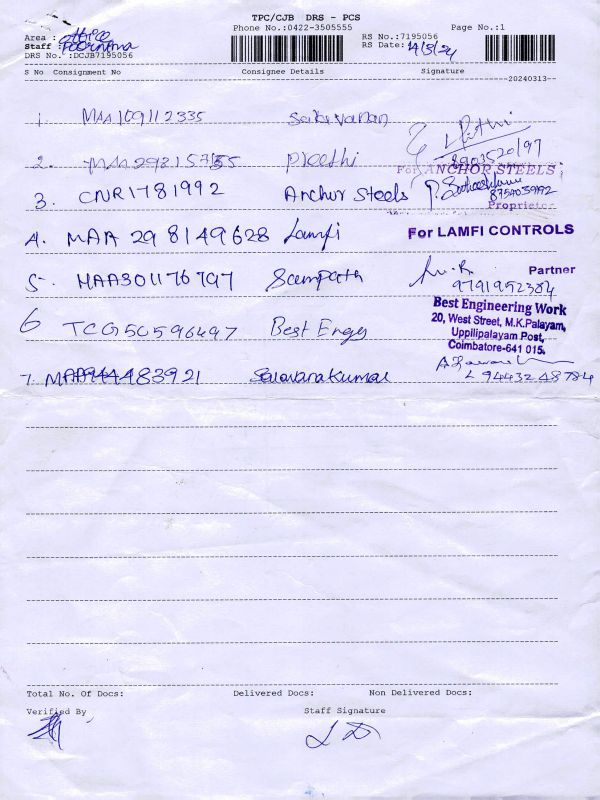 TPC/CJB DRS - PCS
Phone No.:0422-3505555
Page No.:1
Area : office
Staff : Poornima
DRS No. :DCJB7195056
RS No.:7195056
RS Date: 14/3/24
S No Consignment No Consignee Details Signature
20240313
1. MAA109112335 Saravanan
2. MAA298157355 Preethi
For ANCHOR STEELS
3. CNR1781992 Anchor Steels
8754039192
Proprietor
4. MAA 298149628 Lamfi For LAMFI CONTROLS
5. MAA301176797 Sampath Partner
9791952384
6 TCG50596497 Best Engg
Best Engineering Work
20, West Street, M.K.Palayam,
Uppilipalayam Post,
Coimbatore-641 015.
7. Saravanakumar 9443248784
Total No. Of Docs: Delivered Docs: Non Delivered Docs:
Verified By Staff Signature